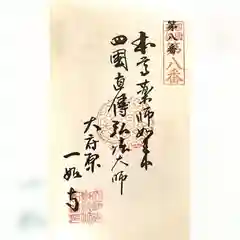 第八番
八番
本尊薬師如来
四國直傳弘法大師
大府東
一如寺